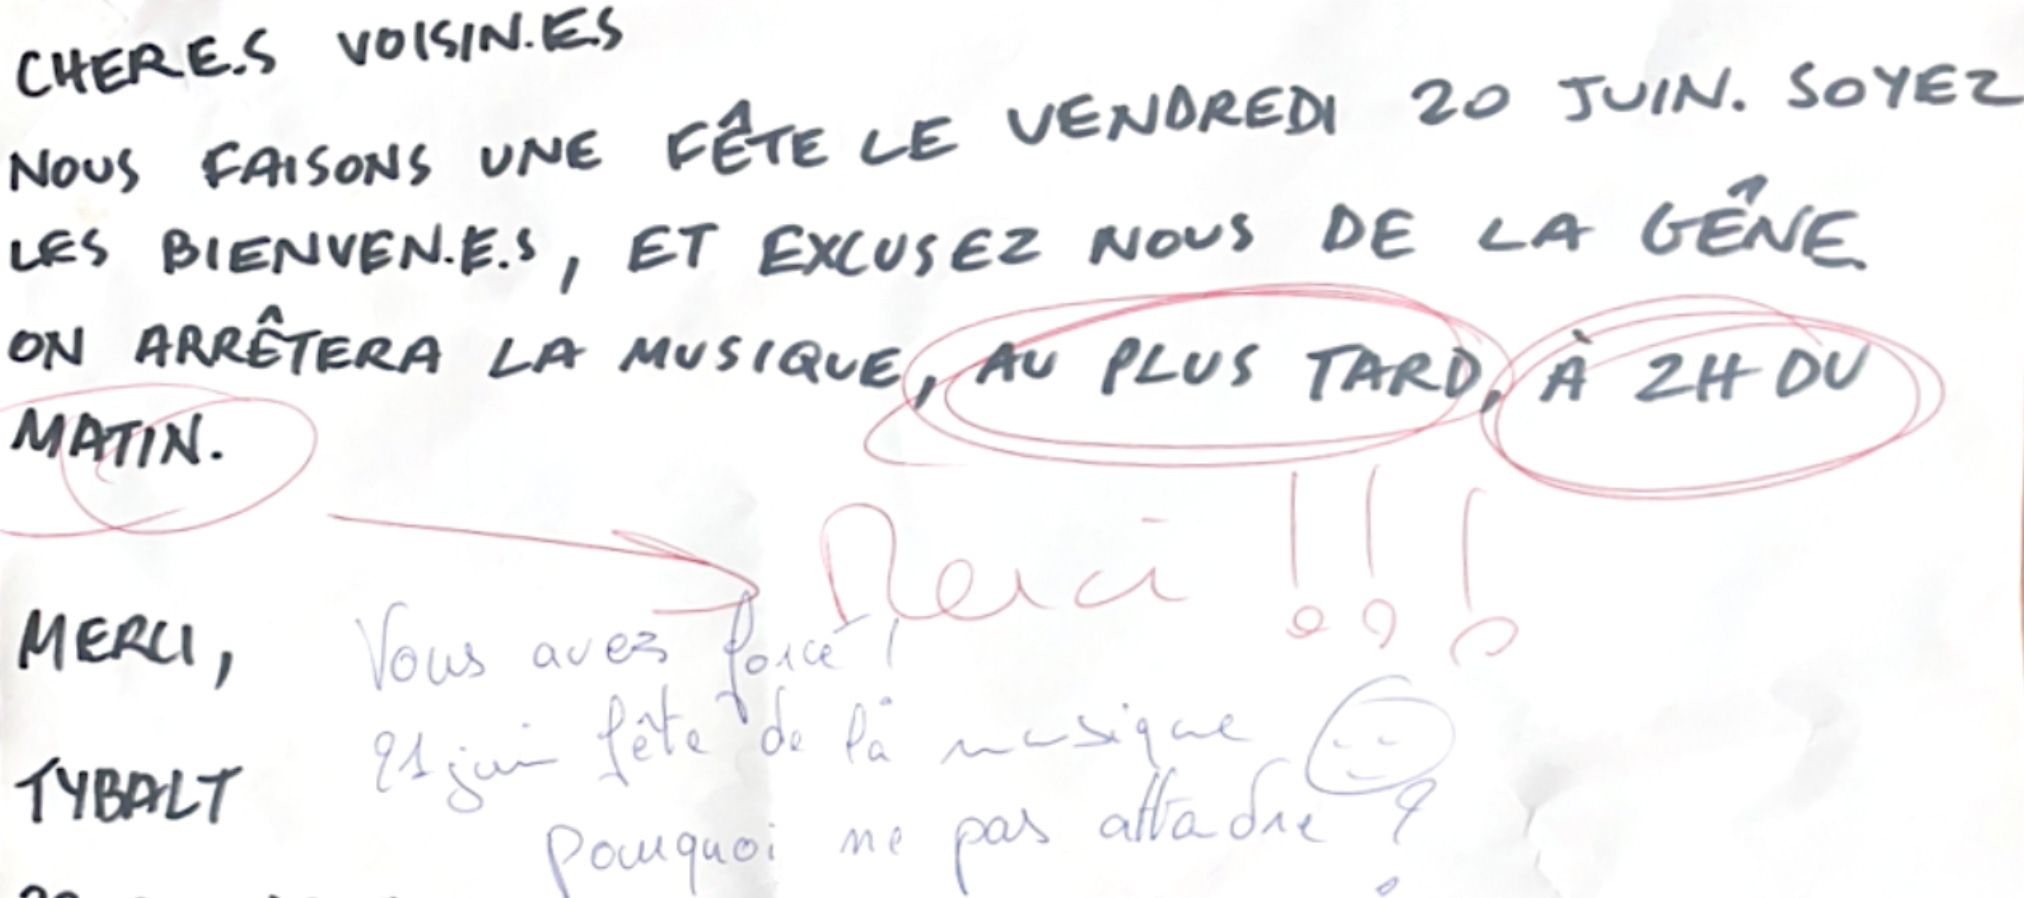 CHERE.S VOISIN.ES
NOUS FAISONS UNE FÊTE LE VENDREDI 20 JUIN. SOYEZ
LES BIENVEN.E.S, ET EXCUSEZ NOUS DE LA GÊNE
ON ARRÊTERA LA MUSIQUE, AU PLUS TARD, À 2H DU
MATIN.
Merci !!!
MERCI,
Vous avez forcé !
21 juin fête de la musique
TYBALT
pourquoi ne pas attadre ?